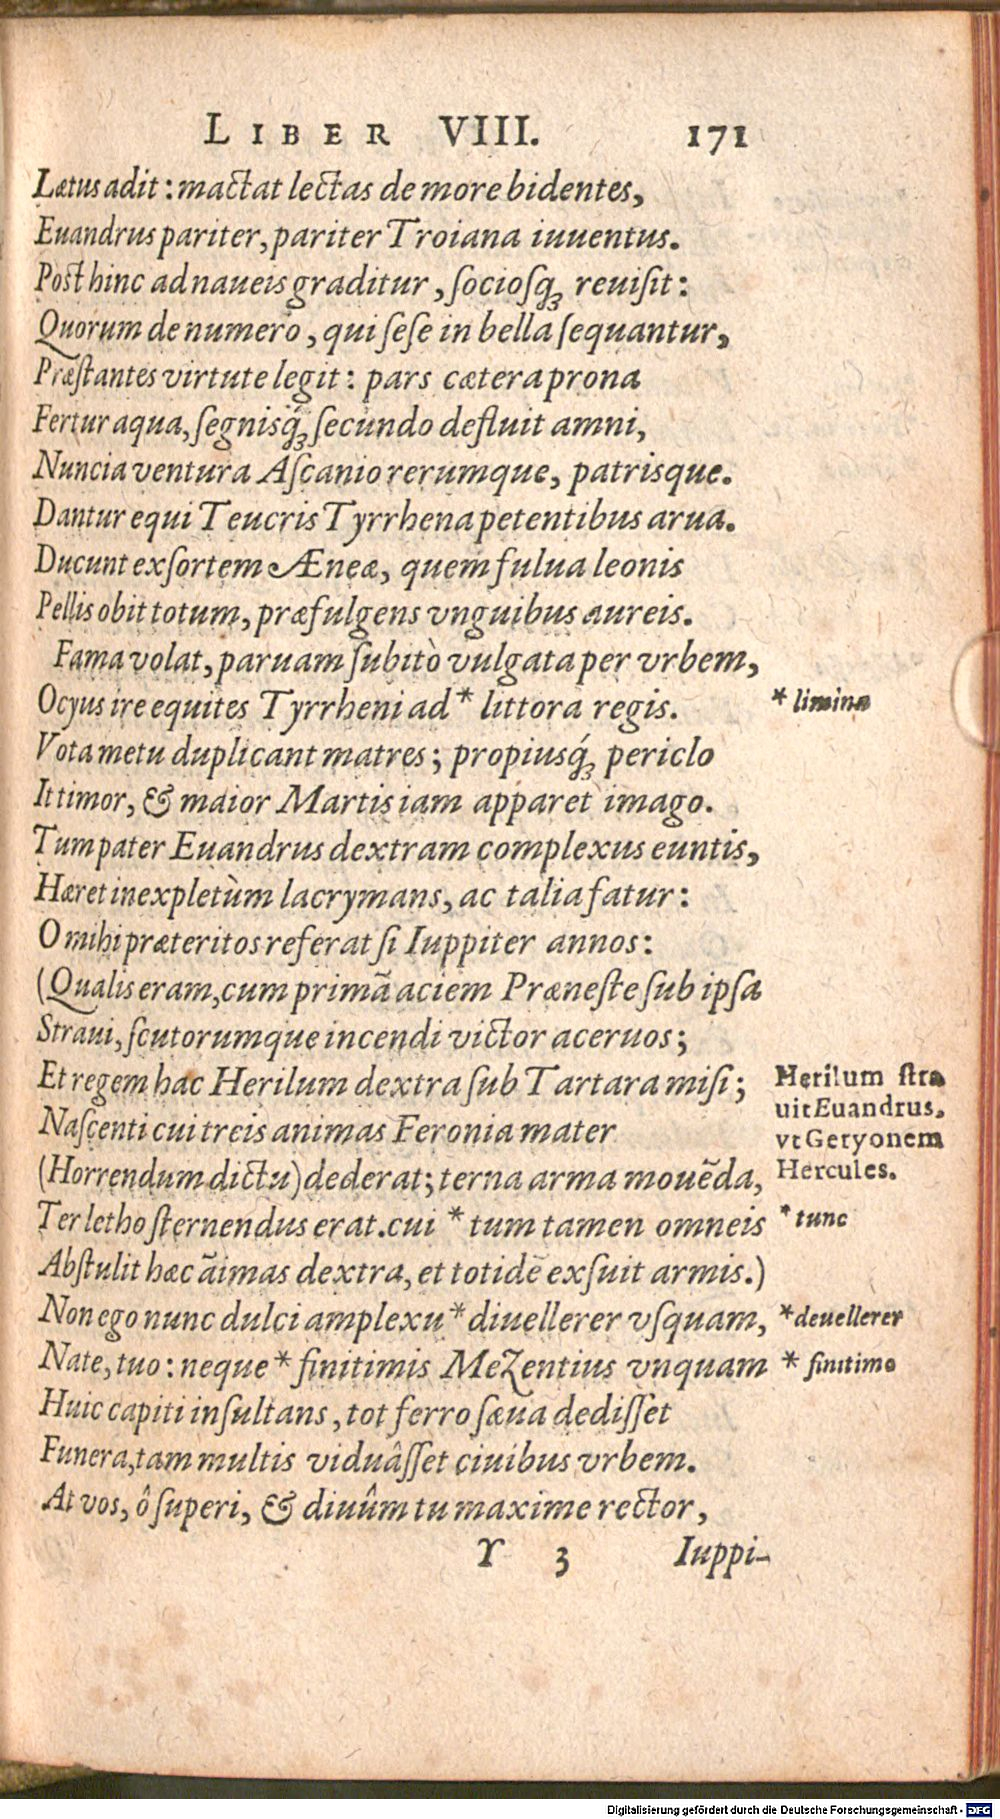 LIBER VIII. 171
Lætus adit: mactat lectas de more bidentes,
Euandrus pariter, pariter Troiana iuuentus.
Post hinc ad naueis graditur, sociosq́ue reuisit:
Quorum de numero, qui sese in bella sequantur,
Præstantes virtute legit: pars cætera prona
Fertur aqua, segnisq́ue secundo defluit amni,
Nuncia ventura Ascanio rerumque, patrisque.
Dantur equi Teucris Tyrrhena petentibus arua.
Ducunt exsortem Æneæ, quem fulua leonis
Pellis obit totum, præfulgens vnguibus aureis.
Fama volat, paruam subitò vulgata per vrbem,
Ocyus ire equites Tyrrheni ad * littora regis. * limina
Vota metu duplicant matres; propiusq́ue periclo
It timor, & maior Martis iam apparet imago.
Tum pater Euandrus dextram complexus euntis,
Hæret inexpletùm lacrymans, ac talia fatur:
O mihi præteritos referat si Iuppiter annos:
(Qualis eram, cum primā aciem Præneste sub ipsa
Straui, scutorumque incendi victor aceruos;
Et regem hac Herilum dextra sub Tartara misi;
Nascenti cui treis animas Feronia mater
(Horrendum dictu) dederat; terna arma mouēda,
Herilum stra
uit Euandrus,
vt Geryonem
Hercules.
Ter letho sternendus erat. cui * tum tamen omneis * tunc
Abstulit hæc āimas dextra, et totidē exsuit armis.)
Non ego nunc dulci amplexu * diuellerer vsquam, * deuellerer
Nate, tuo: neque * finitimis Mezentius vnquam * finitimo
Huic capiti insultans, tot ferro sæua dedisset
Funera, tam multis viduâsset ciuibus vrbem.
At vos, ô superi, & diuûm tu maxime rector,
Y 3 Iuppi-
Digitalisierung gefördert durch die Deutsche Forschungsgemeinschaft - DFG